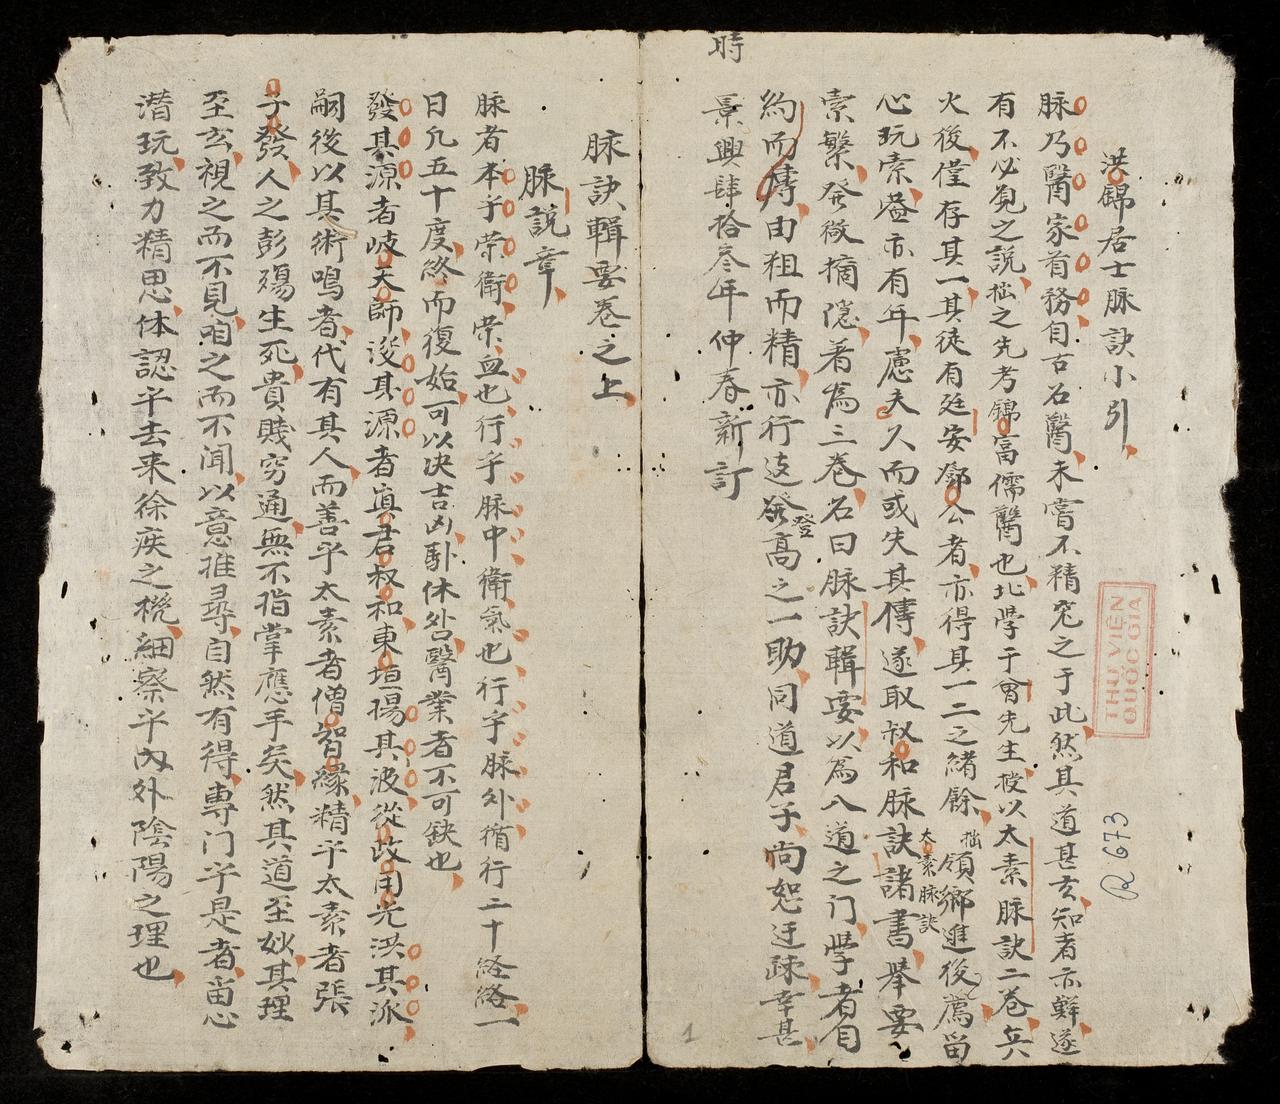 洪錦居士脉訣小引
脉乃醫家首務自古名醫未嘗不精究之于此然其道甚玄知者亦鮮遂
有不必覓之說拙之先考錦富儒醫也北學于會先生授以太素脉訣二卷兵
火後僅存其一其徒有延安鄧公者亦得其一二之緒餘拙領鄉進後薦留
太素脉訣
心玩索蓋亦有年慮夫久而或失其傳遂取叔和脉訣諸書舉要
索繁發微摘隱著為二卷名曰脉訣輯要以為入道之门學者自
約而博由粗而精亦行遠登高之一助同道君子尚恕迂疎幸甚
時
景興肆拾叁年仲春新訂
脉訣輯要卷之上
脉說章
脉者本乎榮衛榮血也行乎脉中衛氣也行乎脉外循行二十經絡一
日凡五十度終而復始可以决吉凶卧休咎醫業者不可缺也
發其源者岐天師浚其源者真君叔和東垣揚其波從政用光洪其派
嗣後以其術鳴者代有其人而善乎太素者僧智緣精乎太素者張
子發人之彭殤生死貴賤窮通無不指掌應手矣然其道至妙其理
至玄視之而不見咱之而不闻以意推尋自然有得專门乎是者留心
潛玩致力精思体認乎去来徐疾之機細察乎內外陰陽之理也
THƯ VIỆN
QUỐC GIA
R 673
1